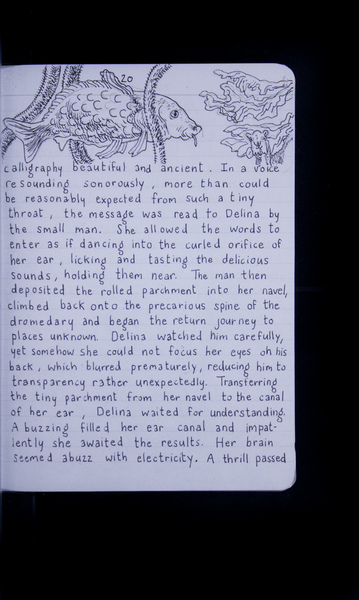 20
calligraphy beautiful and ancient. In a voice
resounding sonorously, more than could
be reasonably expected from such a tiny
throat, the message was read to Delina by
the small man. She allowed the words to
enter as if dancing into the curled orifice of
her ear, licking and tasting the delicious
sounds, holding them near. The man then
deposited the rolled parchment into her navel,
climbed back onto the precarious spine of the
dromedary and began the return journey to
places unknown. Delina watched him carefully,
yet somehow she could not focus her eyes on his
back, which blurred prematurely, reducing him to
transparency rather unexpectedly. Transferring
the tiny parchment from her navel to the canal
of her ear, Delina waited for understanding.
A buzzing filled her ear canal and impat-
iently she awaited the results. Her brain
seemed abuzz with electricity. A thrill passed